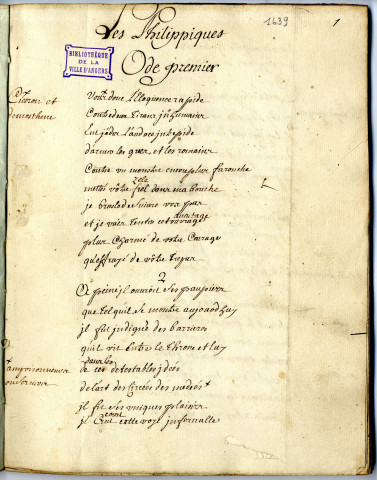 1639
1
Les Philippiques
BIBLIOTHÈQUE
DE LA
VILLE D'ANGERS
Ode premier
Ciceron et
demosthene
Vous dont l'Eloquence rapide
Contre deux Tirans inhumains
Eut jadis l'audace intrepide
d'armer les grecs, et les romains
Contre un monstre encore plus farouche
zele
mettés vôtre fiel dans ma bouche
je brusle de suivre vos pas
ouvrage
et je vais tenter cet
plus charmé de votre Courage
qu'effrayé de vôtre trepas
2
A peine il ouvroit ses paupieres
que tel qu'il se montre aujourdhuy
il fut indigné des barrieres
qu'il vit Entre le Throne et luy
dans les
de ces detestables idées
de l'art des Circées des medées
il fit ses uniques plaisirs
il cette voye infernalle